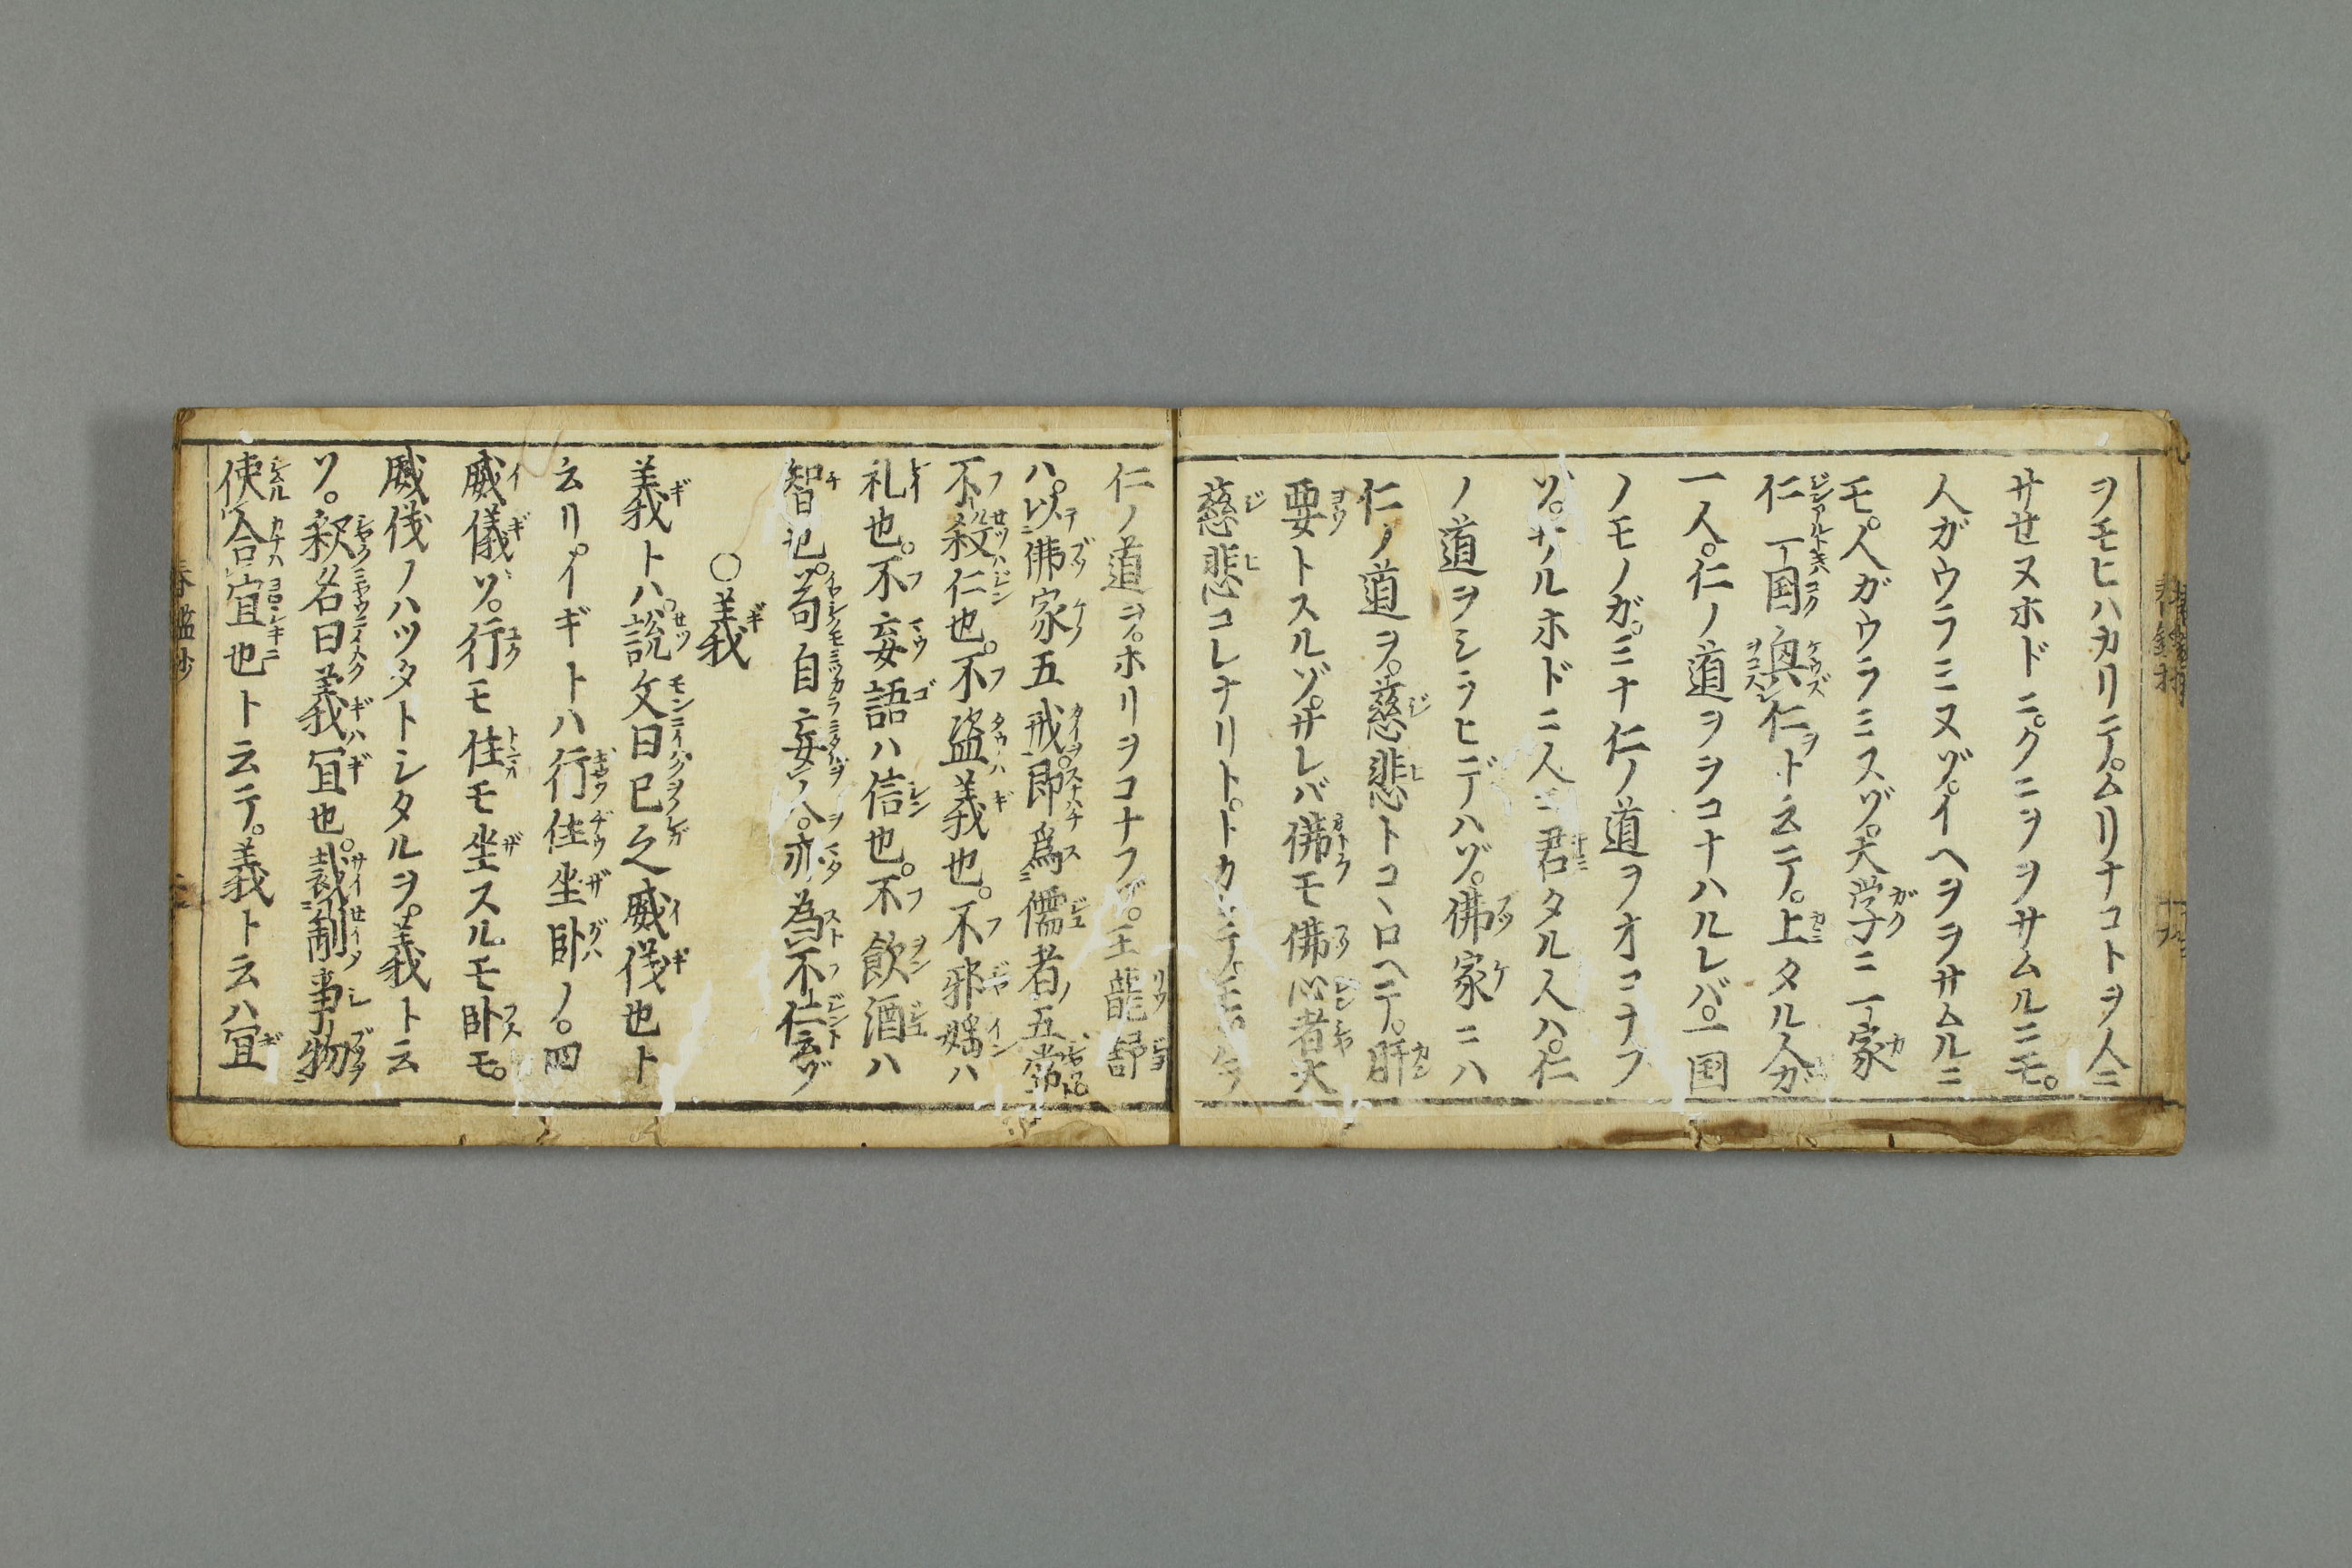 ヲモヒハカリテ。ムリナコトヲ人ニ
サセヌホドニ。クニヲヲサムルニモ。
人ガウラミヌゾ。イヘヲヲサムルニ
モ。人ガウラミスゾ。大学ニ一家
仁アルトキ一国興仁ヲト云テ。上タル人ガ
一人。仁ノ道ヲヲコナハルレバ。一国
ノモノガ。ミナ仁ノ道ヲオコナフ
ゾ。サルホドニ人ニ君タル人ハ。仁
ノ道ヲシラヒデハゾ。佛家ニハ
仁ノ道ヲ。慈悲トコヽロヘテ。肝
要トスルゾ。サレバ佛モ佛心者大
慈悲コレナリト。トカ
仁ノ道ヲ。ホリヲコナフゾ。王龍舒
ハ。以佛家五戒。即爲儒者ノ五常
不殺仁也。不盗義也。不邪婬ハ
礼也。不妄語ハ信也。不飲酒ハ
智也。苟自妄ハ。亦為不仁云ゾ
○義
義トハ。説文曰己之威儀也ト
云リ。イギトハ行住坐卧ノ。四
威儀ゾ。行モ住モ坐スルモ卧モ。
威儀ノハツタトシタルヲ。義ト云
ゾ。釈名曰義宜也。裁制事物
使合宜也ト云テ。義ト云ハ宜
春鑑抄